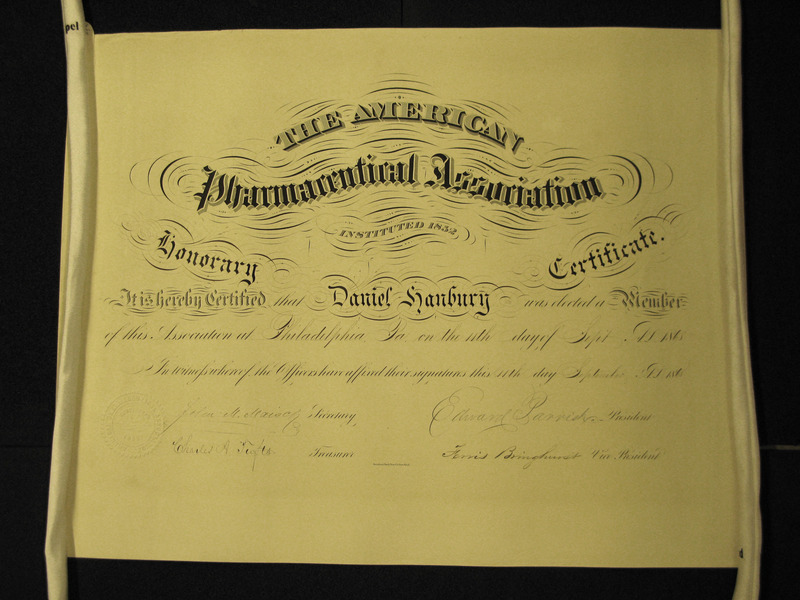 pel
THE AMERICAN
Pharmaceutical Association
INSTITUTED 1852
Honorary Certificate.
It is hereby Certified that Daniel Hanbury was elected a Member
of this Association at Philadelphia Pa. on the 11th day of Sept AD 186
In witness whereof the Officers have affixed their signatures this 11th day September AD 186
John M. Maisch Secretary Edward Parrish President
Charles A. Tufts Treasurer Ferris Bringhurst Vice President